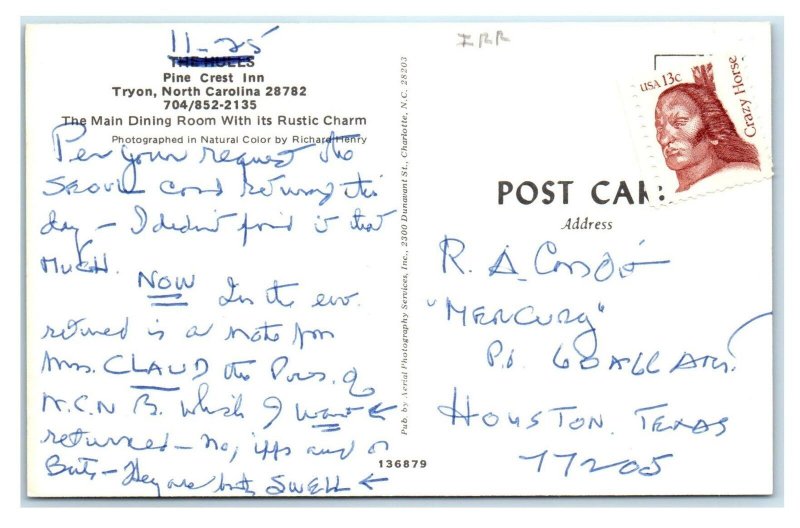 11-25
THE HULLS
Pine Crest Inn
Tryon, North Carolina 28782
704/852-2135
The Main Dining Room With its Rustic Charm
Photographed in Natural Color by Richard Henry
Per your request the
card returned this
day - I didn't find it that
much.
NOW In the env.
returned is a note for
Mrs. CLAUD the Pres. of
N.C.N B. which I want ←
returned - No, ifs and or
Buts - They are both SWELL ←
Pub. by Aerial Photography Services, Inc., 2300 Dunavant St., Charlotte, N.C. 28203
136879
IRR
USA 13c
Crazy Horse
POST CAR
Address
R. A.
"MERCURY"
P.O.
HOUSTON, TEXAS
77205